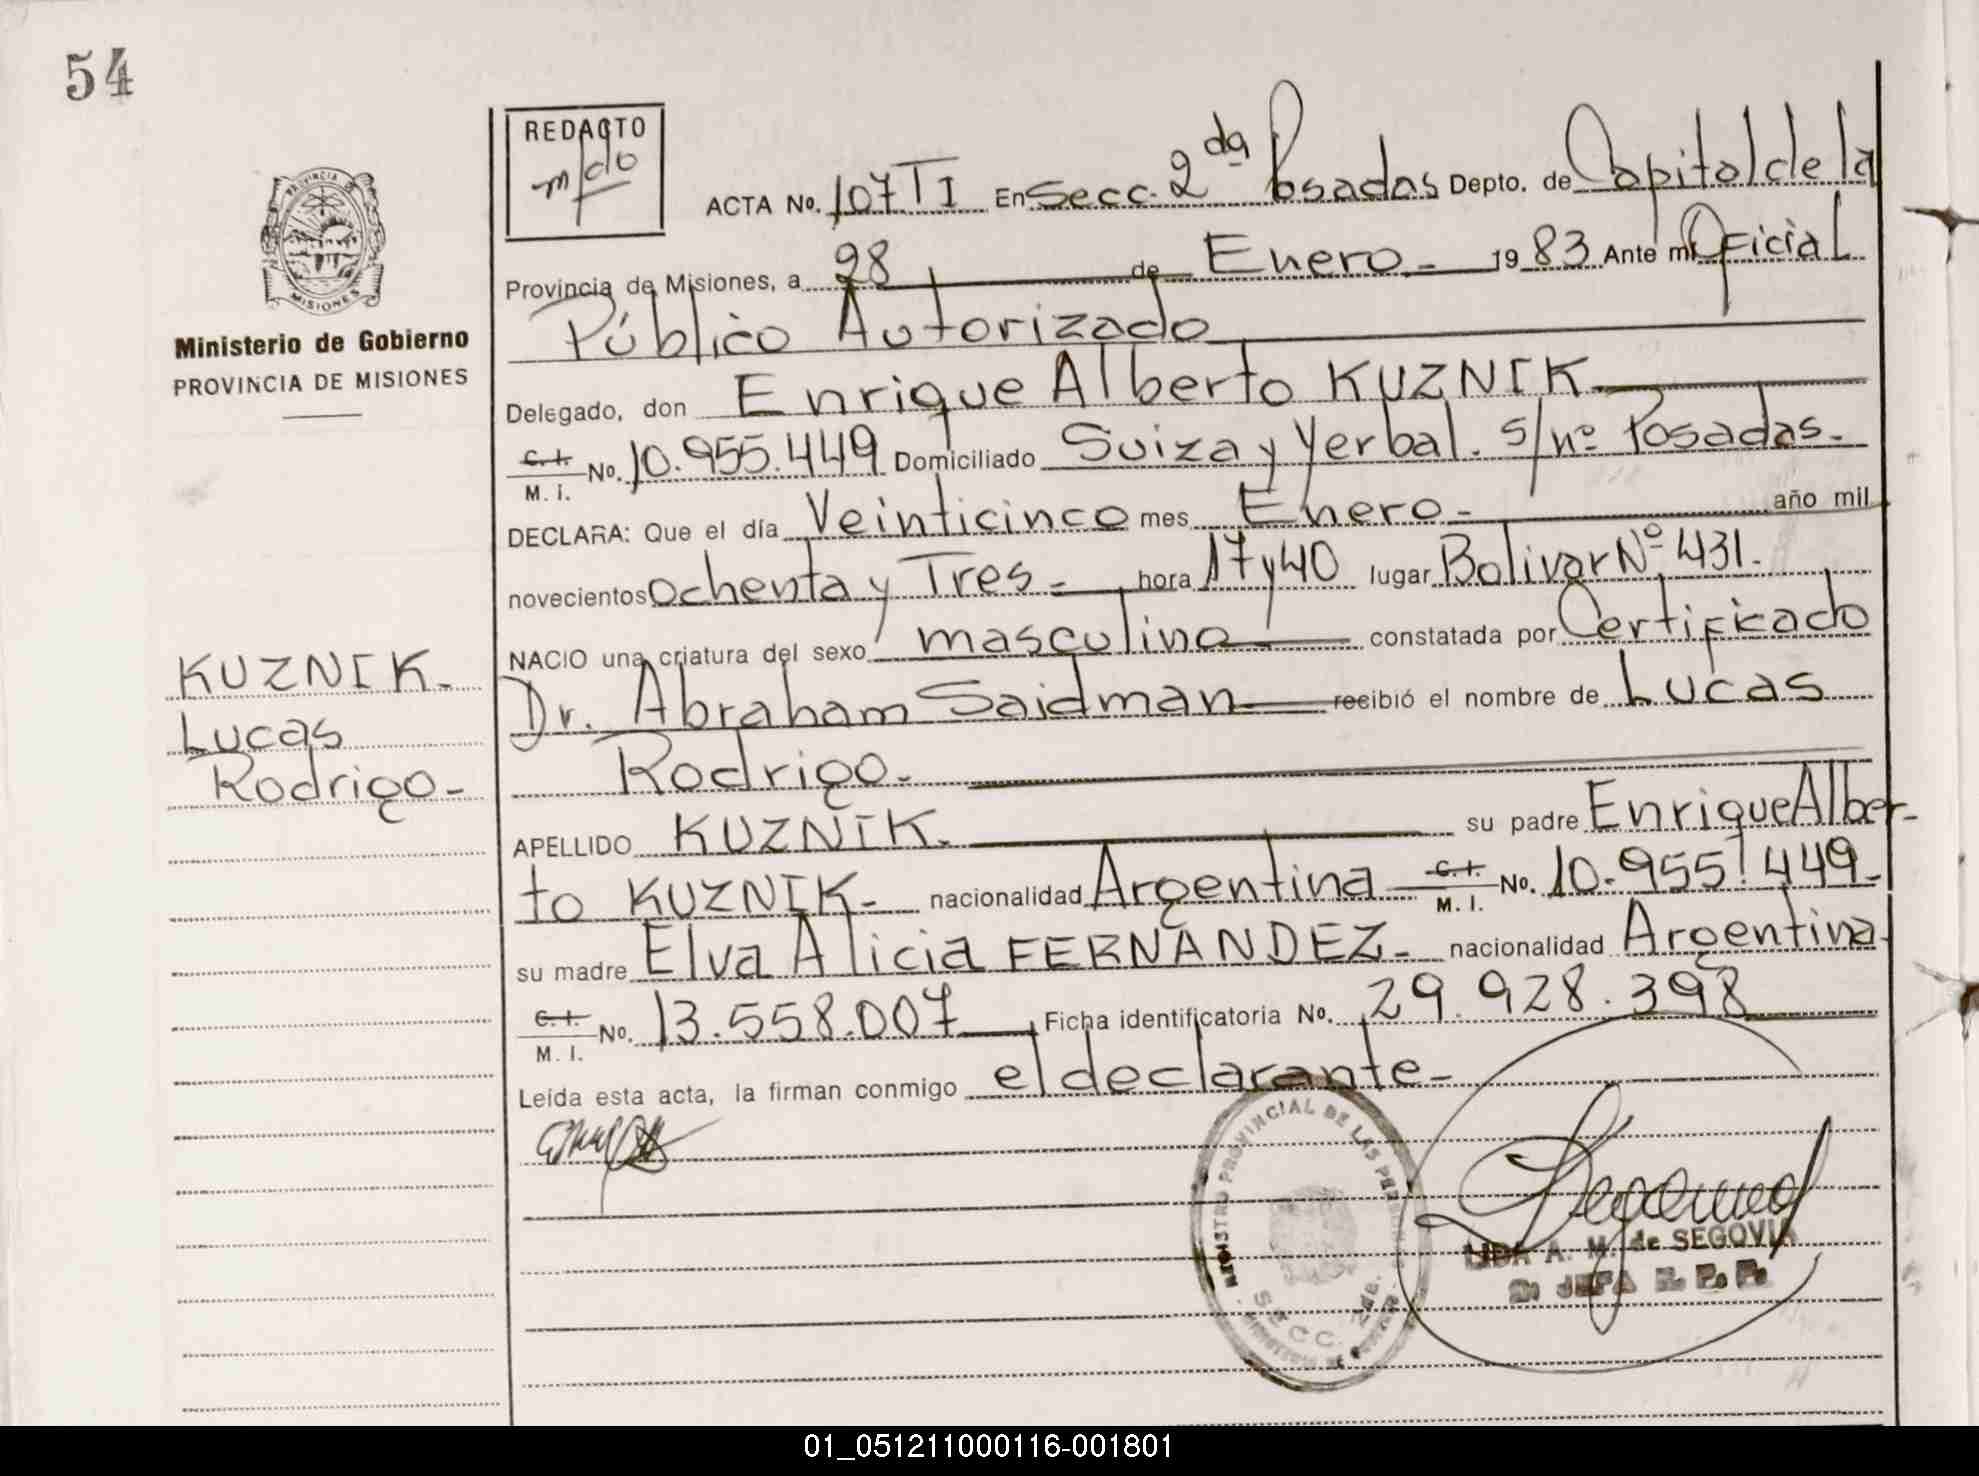 54
REDACTO
PROVINCIA DE
MISIONES
Ministerio de Gobierno
PROVINCIA DE MISIONES
ACTA No. 107 TI En Secc. 2da Posadas Depto. de Capital de la
Provincia de Misiones, a 28 de Enero - 1983 Ante mi Oficial
Público Autorizado
Delegado, don Enrique Alberto KUZNIK
C.I. M. I. No. 10.955.449 Domiciliado Suiza y Yerbal. s/nº Posadas.-
DECLARA: Que el día Veinticinco mes Enero - año mil
novecientos ochenta y Tres - hora 17 y 40 lugar Bolivar Nº 431.
NACIO una criatura del sexo masculino constatada por Certificado
Dr. Abraham Saidman recibió el nombre de Lucas
Rodrigo.
KUZNIK.
Lucas
Rodrigo-
APELLIDO KUZNIK. su padre Enrique Alber-
to KUZNIK- nacionalidad Argentina C.I. M. I. No. 10.955.449-
su madre Elva Alicia FERNANDEZ- nacionalidad Argentina-
C.I. M. I. No. 13.558.007 Ficha identificatoria No. 29.928.398
Leída esta acta, la firman conmigo el declarante-
REGISTRO PROVINCIAL DE LAS PERSONAS
SECC. 2da.
LIDA A. M. de SEGOVIA
JEFA R. P. P.
01_051211000116-001801